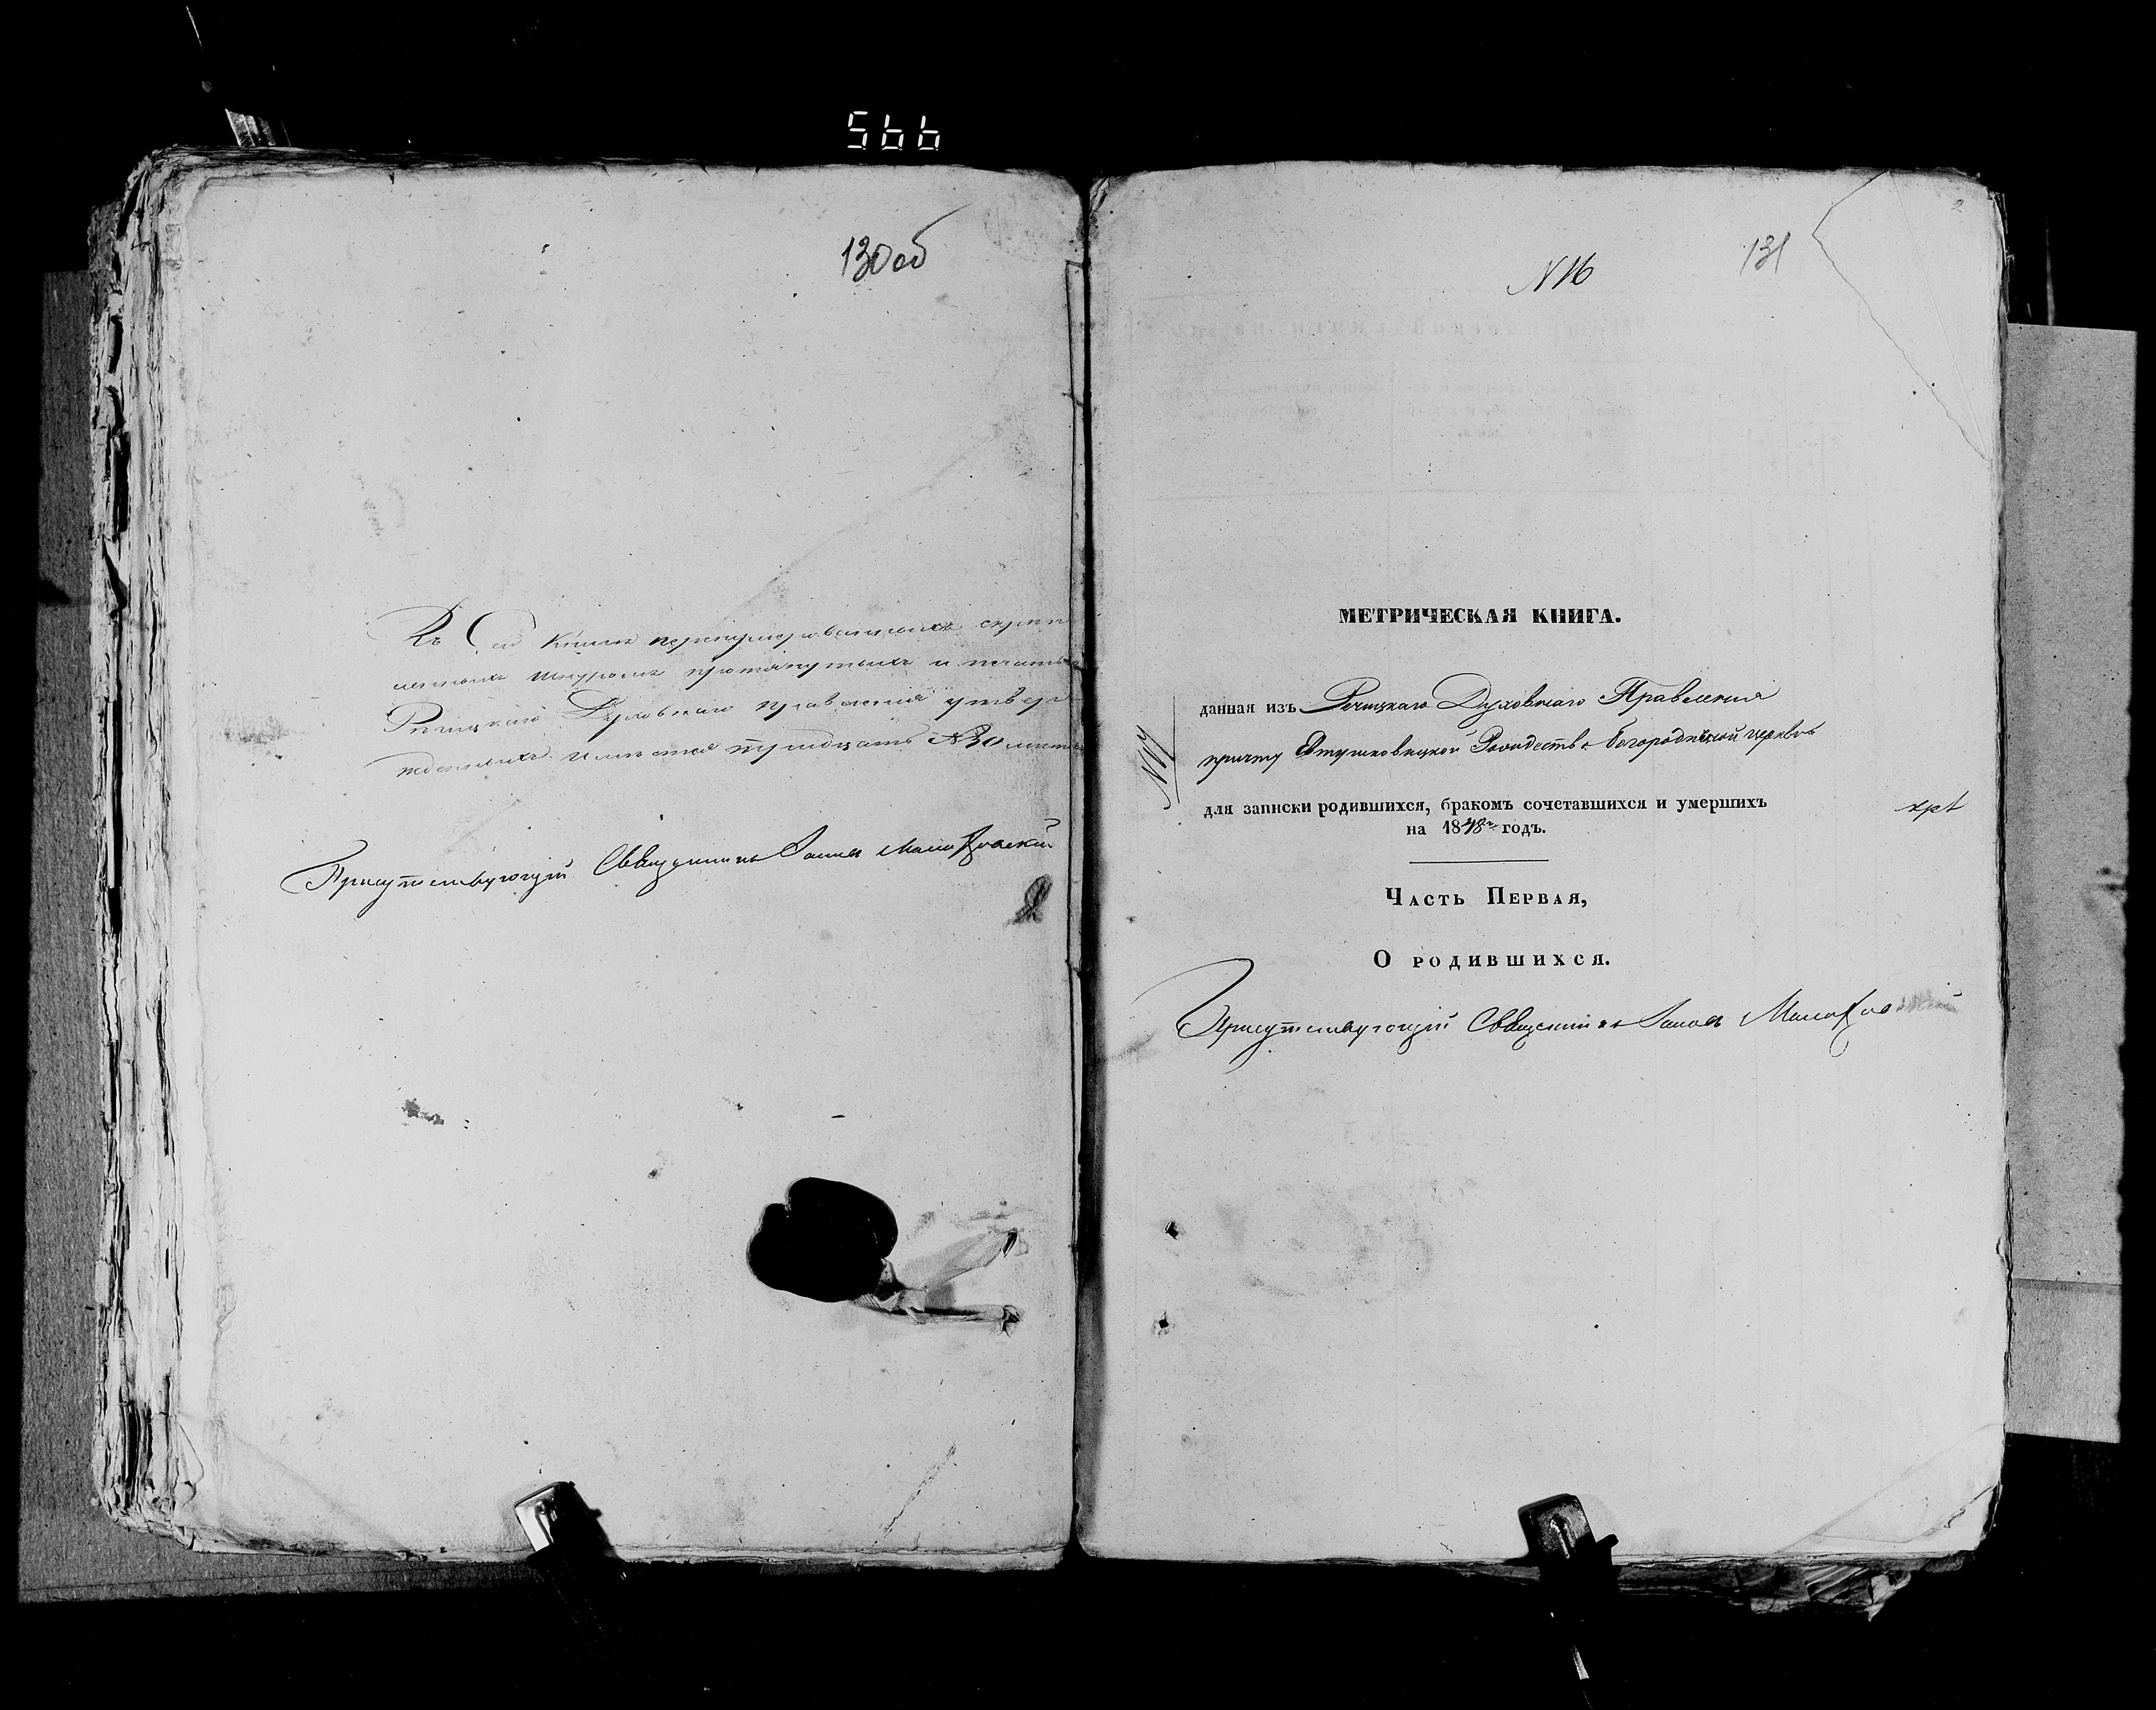 566
130об
Въ Сей Книге перенумерованныхъ скреп
ленныхъ шнуромъ протянутыхъ и печатью
Речицкаго Духовнаго правления утверж
денныхъ имеется тридцать №30 листов
Присутствующій Священникъ
N16
131
2
МЕТРИЧЕСКАЯ КНИГА.
данная изъ Речицкаго Духовнаго Правления
причту Рождество Богородичной церкви
для записки родившихся, бракомъ сочетавшихся и умершихъ
на 1848 годъ.
Часть Первая,
О родившихся.
Присутствующій Священникъ